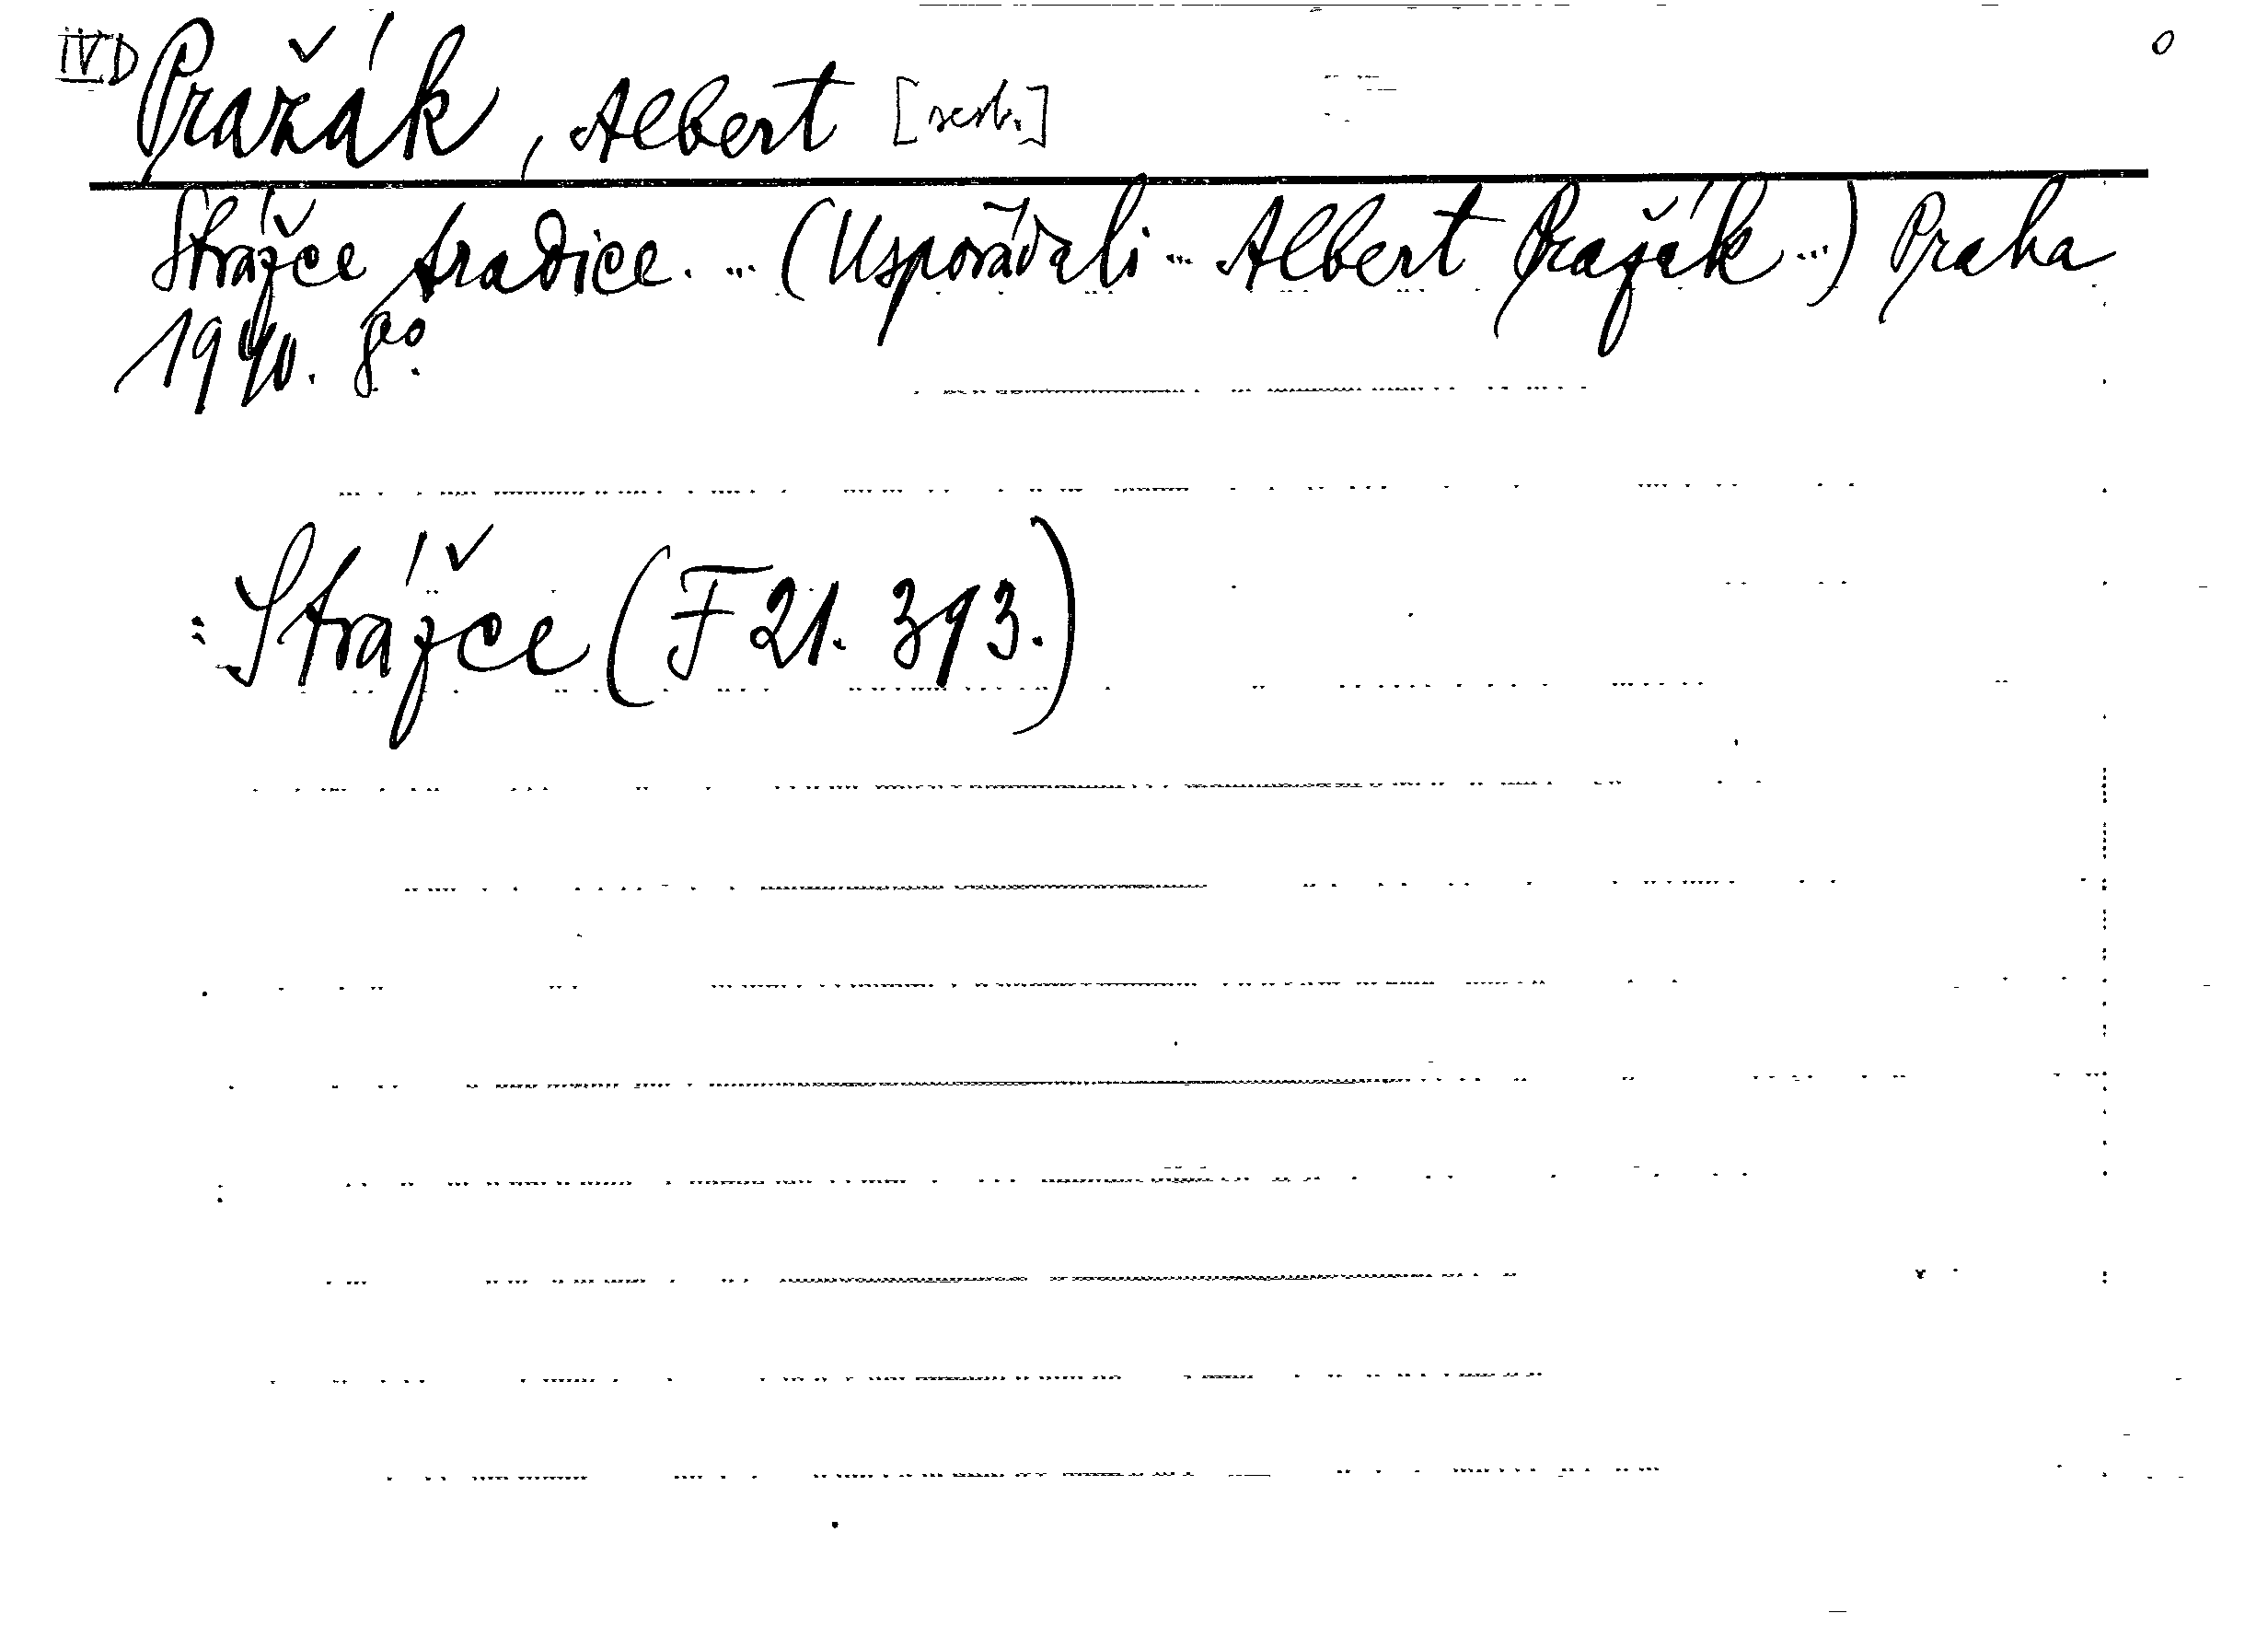 IVD Pražák, Albert [sest.] 0
Strážce tradice. ... (Uspořádali ... Albert Pražák ...) Praha
1940. 8°.
: Strážce (F 21. 393.)